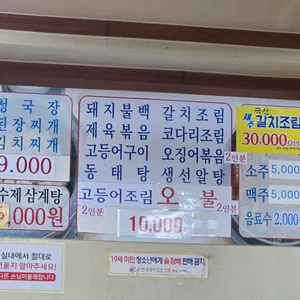 청국장
된장찌개
김치찌개
9,000
수제 삼계탕
,000원
돼지불백 갈치조림
제육볶음 코다리조림
고등어구이 오징어볶음
동태탕 생선알탕
고등어조림 오불
2인분
2인분
10,000
국산
제주 갈치조림
30,000(2인)
소주 5,000
맥주 5,000
음료수 2,000
실내에서 절대로
19세 미만 청소년에게 술·담배 판매 금지